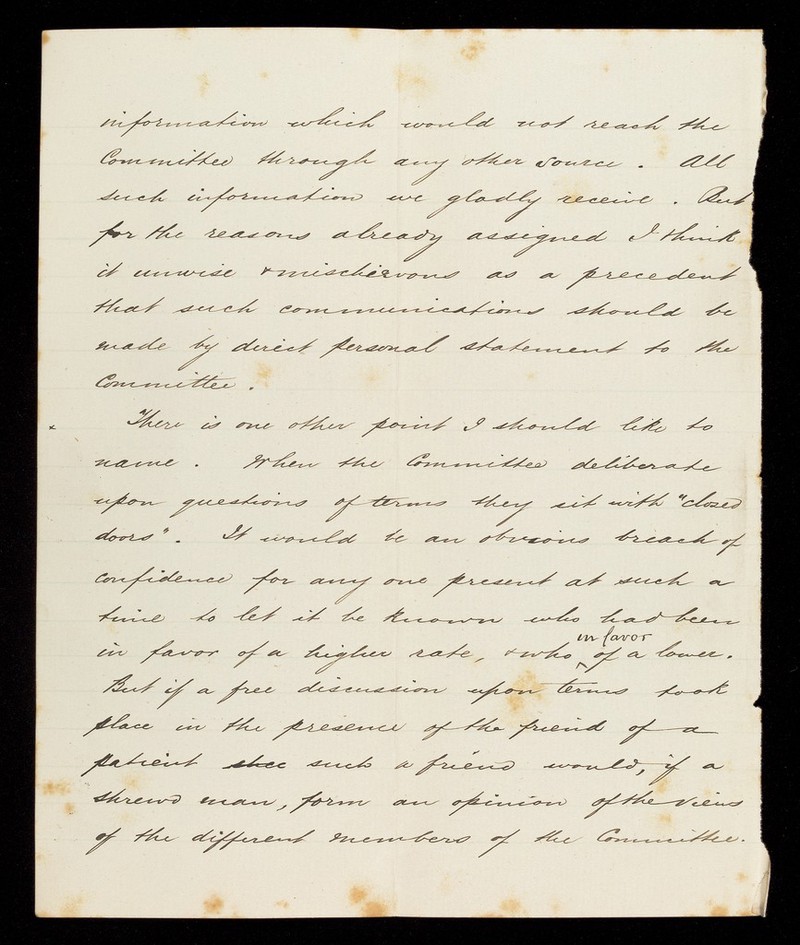 information which would not reach the
Committee through any other source. All
such information we gladly receive. But
for the reasons already assigned I think
it unwise & mischievous as a precedent
that such communications should be
made by direct personal statement to the
Committee.
x There is one other point I should like to
name. When the Committee deliberate
upon questions of terms they sit with "closed
doors". It would be an obvious breach of
confidence for any one present at such a
time to let it be known who had been
in favor
in favor of a higher rate, & who of a lower.
But if a free discussion upon terms took
place in the presence of the friend of a
patient such a friend would, if a
shrewd man, form an opinion of the views
of the different members of the Committee.